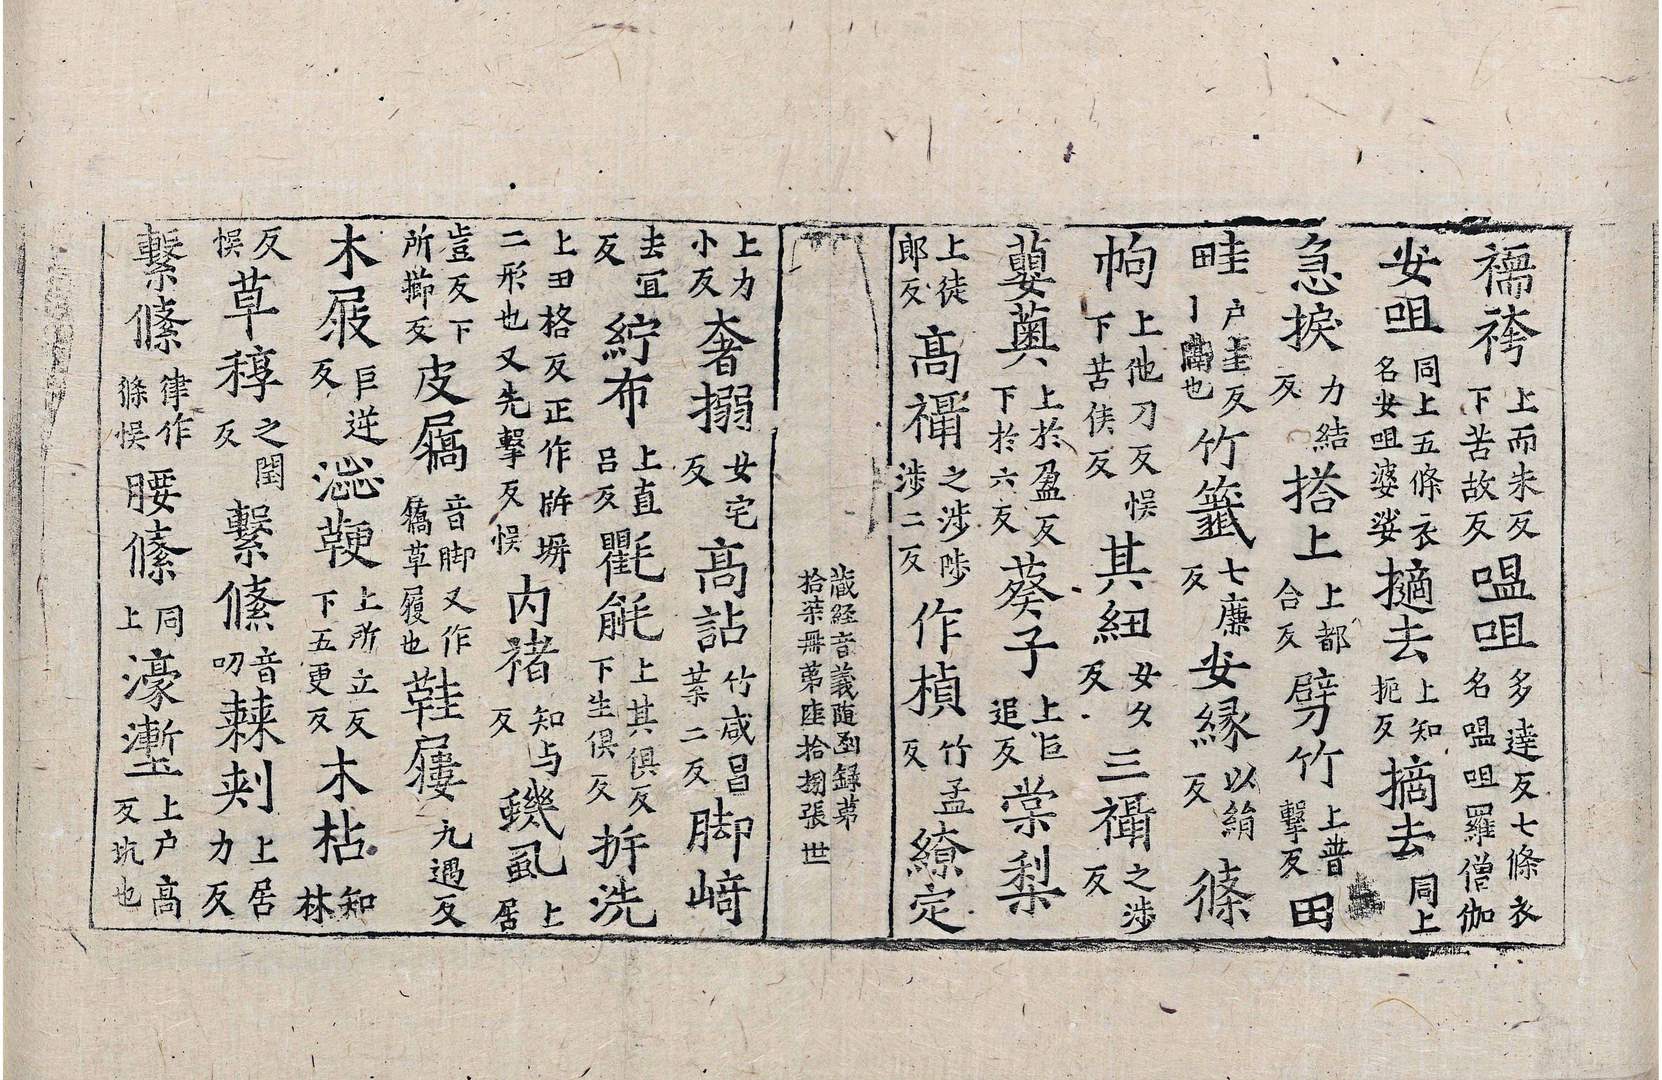 襦袴上而朱反下苦故反嗢咀多達反七條衣名嗢咀羅僧伽
安咀同上五條衣名安咀婆娑擿去上知扼反摘去同上
急捩力結反搭上上都合反劈竹上普擊反田
畦户圭反丨也竹籤七廉反安緣以絹反絛
帉上他刀反悮下苦侠反其紐女久反三襵之涉反
蘡薁上於盈反下於六反葵子上巨追反棠梨
上徒郎反高襵之涉陟涉二反作楨竹孟反繚定
藏經音義随凾録苐拾柒册苐陸拾捌張 世
上力小反奢搦女宅反高詀竹咸昌葉二反脚﨑
去冝反紵布上直吕反氍毹上其俱反下生俱反折洗
上田格反正作㡿塀二形也又先擊反悮内褚知与反蟣虱上居
豈反下所擳反皮屩音脚又作屫草履也鞋屨九遇反
木屐巨逆反澁鞕上所立反下五更反木枮知林
反悮草稕之閏反繫絛音叨棘刺上居力反
繫絛律作絛悮腰絛同上濠塹上户高反坑也